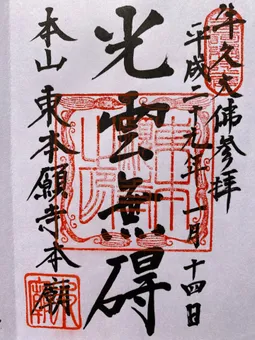 牛久大佛参拝
平成二十九年 一月十四日
光雲無碍
本山 東本願寺本廟